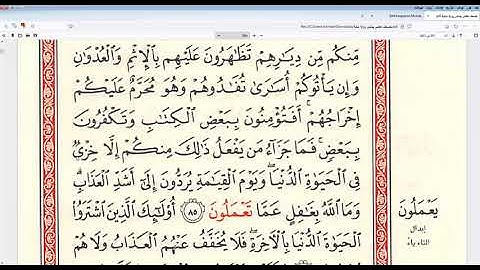 مِّنكُم مِّن دِيَٰرِهِمْ تَظَٰهَرُونَ عَلَيْهِم بِٱلْإِثْمِ وَٱلْعُدْوَٰنِ
وَإِن يَأْتُوكُمْ أُسَٰرَىٰ تُفَٰدُوهُمْ وَهُوَ مُحَرَّمٌ عَلَيْكُمْ
إِخْرَاجُهُمْ ۚ أَفَتُؤْمِنُونَ بِبَعْضِ ٱلْكِتَٰبِ وَتَكْفُرُونَ
بِبَعْضٍ ۚ فَمَا جَزَآءُ مَن يَفْعَلُ ذَٰلِكَ مِنكُمْ إِلَّا خِزْىٌ
فِى ٱلْحَيَوٰةِ ٱلدُّنْيَا ۖ وَيَوْمَ ٱلْقِيَٰمَةِ يُرَدُّونَ إِلَىٰٓ أَشَدِّ ٱلْعَذَابِ ۗ
وَمَا ٱللَّهُ بِغَٰفِلٍ عَمَّا تَعْمَلُونَ ٨٥ أُو۟لَٰٓئِكَ ٱلَّذِينَ ٱشْتَرَوُا۟
ٱلْحَيَوٰةَ ٱلدُّنْيَا بِٱلْءَاخِرَةِ ۖ فَلَا يُخَفَّفُ عَنْهُمُ ٱلْعَذَابُ وَلَا هُمْ
يَعْمَلُونَ
إبدال
التاء ياءً